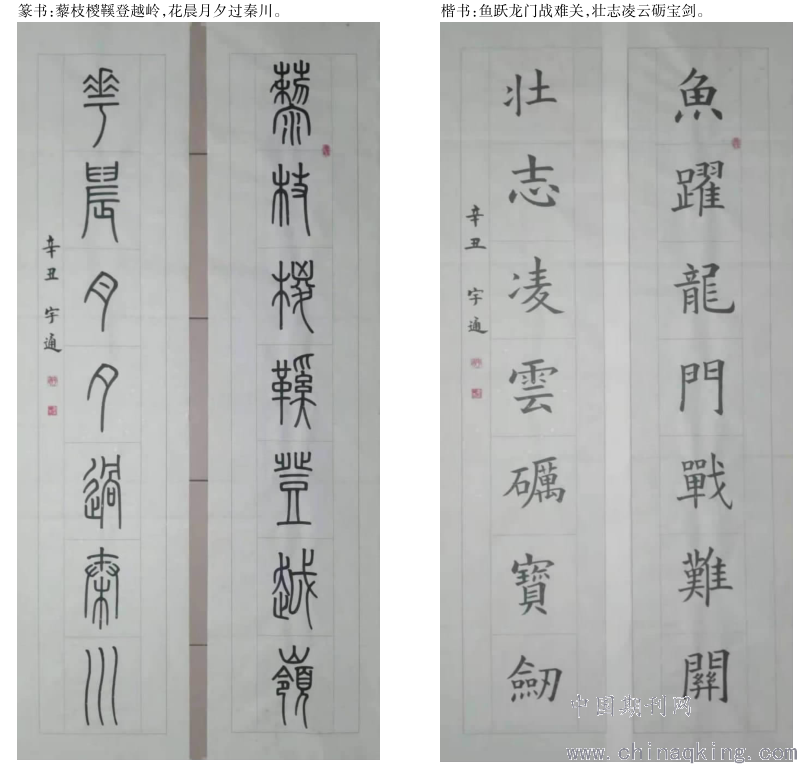 篆书:藜枝椶鞵登越岭,花晨月夕过秦川。
藜枝椶鞵登越嶺
華晨月夕過秦川
辛丑 宇通
楷书:鱼跃龙门战难关,壮志凌云砺宝剑。
魚躍龍門戰難關
壯志凌雲礪寶劒
辛丑 宇通
中国期刊网
www.chinaqking.com